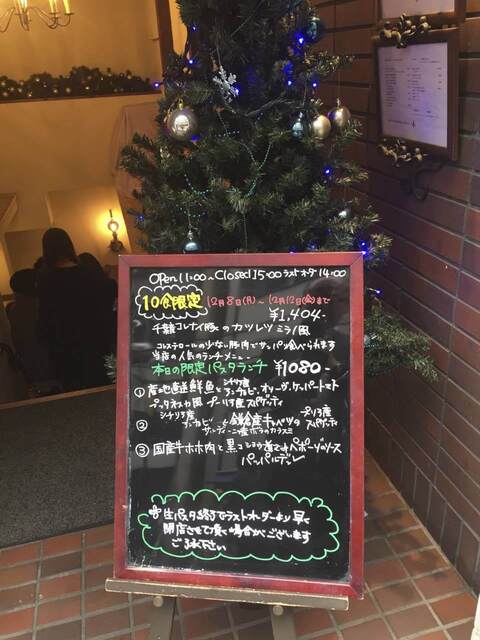 Open 11:00~Closed 15:00 ラストオーダー 14:00
10食限定 12月8日(月)~12月12日(金)まで
¥1,404-
千葉コレナイ豚のカツレツミラノ風
コレステロールの少ない豚肉でサッパリ食べられます
当店の人気のランチメニュー
本日の限定パスタランチ ¥1080-
① 産地直送鮮魚とシチリア産アンチョビ、オリーヴ、ケッパートマト
プッタネスカ風 プーリア産スパゲッティ
② シチリア産アンチョビと鎌倉産キャベツのプーリア産スパゲッティ
サルディーニャ産ボラのカラスミ
③ 国産牛ホホ肉と黒コショウ煮込みペポーゾのソース
パッパルデッレ
※生パスタ終了でラストオーダーより早く
閉店させて頂く場合がございます
ご了承下さい